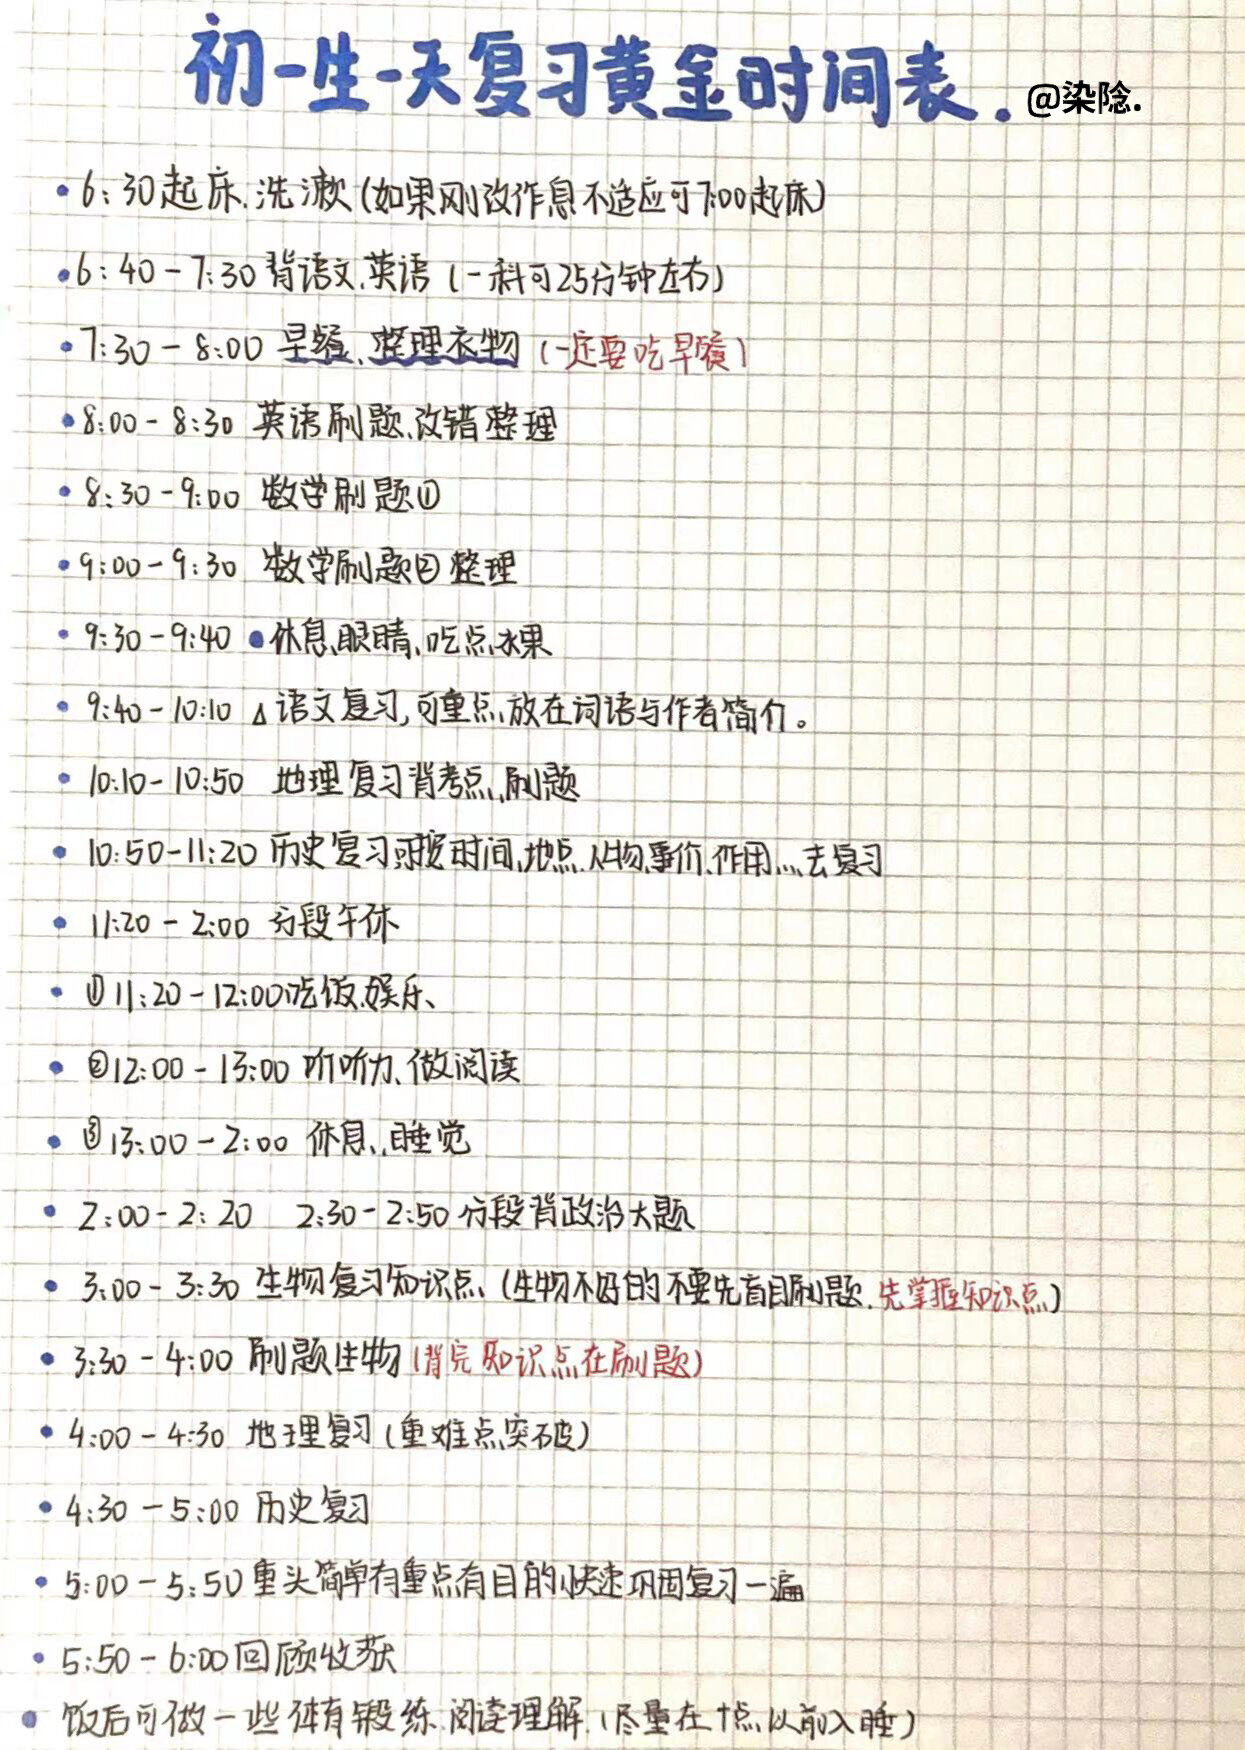 初一生一天复习黄金时间表.@染陰.
6:30起床、洗漱(如果刚改作息不适应可7:00起床)
6:40-7:30背语文、英语(一科可25分钟左右)
7:30-8:00早餐、整理衣物(一定要吃早餐)
8:00-8:30 英语刷题、改错整理
8:30-9:00 数学刷题①
9:00-9:30 数学刷题②整理
9:30-9:40 休息、眼睛、吃点水果
9:40-10:10 △语文复习,可重点放在词语与作者简介。
10:10-10:50 地理复习背考点、刷题
10:50-11:20历史复习可按时间、地点、人物、事价、作用...去复习
11:20-2:00 分段午休
①11:20-12:00吃饭、娱乐、
②12:00-13:00 听听力、做阅读
③13:00-2:00 休息、睡觉
2:00-2:20 2:30-2:50分段背政治大题
3:00-3:30 生物复习知识点、(生物不好的不要先盲目刷题、先掌握知识点)
3:30-4:00 刷题生物(背完知识点在刷题)
4:00-4:30 地理复习(重难点突破)
4:30-5:00 历史复习
5:00-5:50重头简单有重点有目的快速巩固复习一遍
5:50-6:00回顾收获
饭后可做一些体育锻练、阅读理解、(尽量在十点以前入睡)